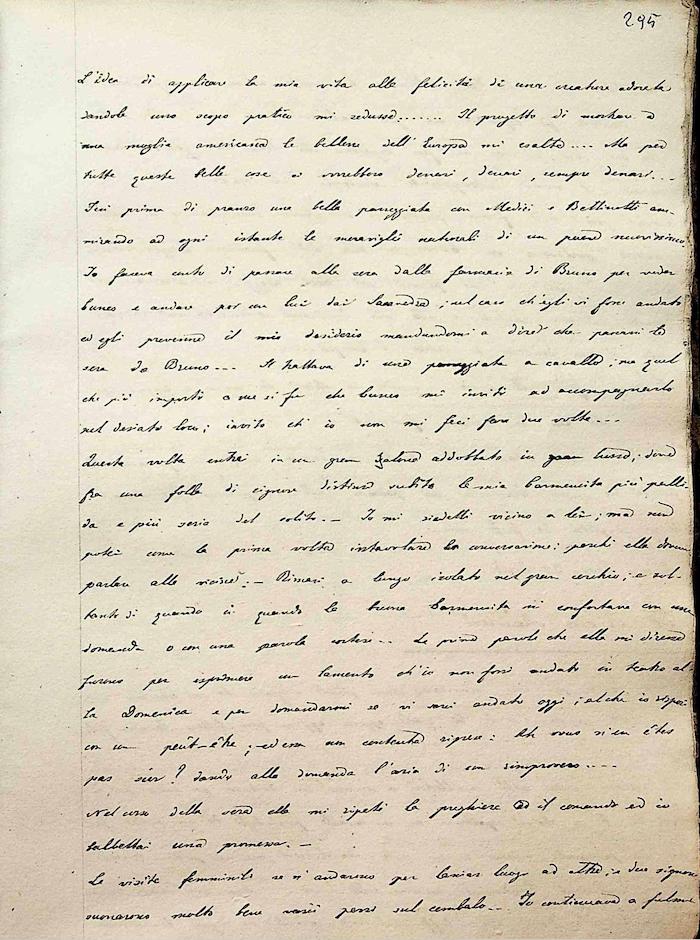 295
L'idea di applicare la mia vita alla felicità di una creatura adorata
dandole uno scopo pratico mi sedusse....... Il progetto di mostrare a
una moglie americana le bellezze dell'Europa mi esaltò.... Ma per
tutte queste belle cose ci vorrebbero denari, denari, sempre denari....
Feci prima di pranzo una bella passeggiata con Medici e Bettinotti am-
mirando ad ogni istante le meraviglie naturali di un paese nuovissimo.
Io faceva conto di passare alla sera dalla farmacia di Bruno per veder
e andare por un lui dai Saavedra; nel caso ch'egli vi fosse andato
ed egli prevenne il mio desiderio mandandomi a dire che passassi la
sera da Bruno... Si trattava di una passeggiata a cavallo; ma quel
che più importò a me si fu che mi invitò ad accompagnarlo
nel desiato loco; invito ch'io non mi feci fare due volte...
Questa volta entrai in un gran salone addobbato in gran lusso; dove
fra una folla di signore distinsi subito la mia Carmencita più palli-
da e più seria del solito. – Io mi sedetti vicino a lei; ma non
potei come la prima volta intavolare la conversazione; perché ella doveva
parlare alle vicine. – Rimasi a lungo isolato nel gran cerchio; e sol-
tanto di quando in quando la buona Carmencita mi confortava con una
domanda o con una parola cortese... Le prime parole che ella mi diresse
furono per esprimere un lamento ch'io non fossi andato in teatro al-
la Domenica e per domandarmi se vi sarei andato oggi; al che io risposi
con un peut-être; ed essa non contenta riprese: Ah vous n'en êtes
pas sûr? dando alla domanda l'aria di un rimprovero....
Nel corso della sera ella mi ripetè la preghiera ed il comando ed io
balbettai una promessa. –
Le visite femminili se n'andarono per lasciar luogo ad altre; e due signore
suonarono molto bene varii pezzi sul cembalo... Io continuava a